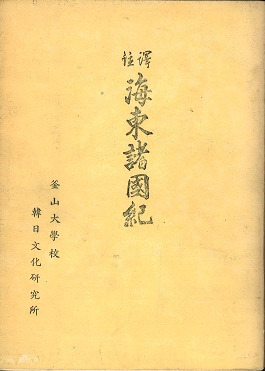 譯註
海東諸國紀
釜山大學校
韓日文化研究所